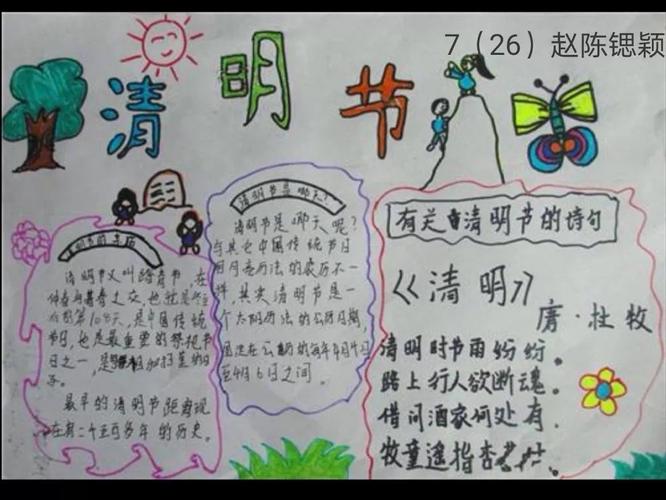 7（26）赵陈锶颖
清明节
清明节的来历
清明节又叫踏青节，在
仲春与暮春之交，也就是冬至
后的第108天，是中国传统
节日，也是最重要的祭祀节
日之一，是祭祖和扫墓的日
子。
最早的清明节距离现
在有二千五百多年的历史。
清明节是哪天？
清明节是哪天呢？
与其它中国传统节日
用月亮历法的农历不一
样，其实清明节是一
个太阳历法的公历日期，
固定在公历的每年4月4日
至4月6日之间。
有关清明节的诗句
《清明》
唐·杜牧
清明时节雨纷纷。
路上行人欲断魂。
借问酒家何处有。
牧童遥指杏花村。